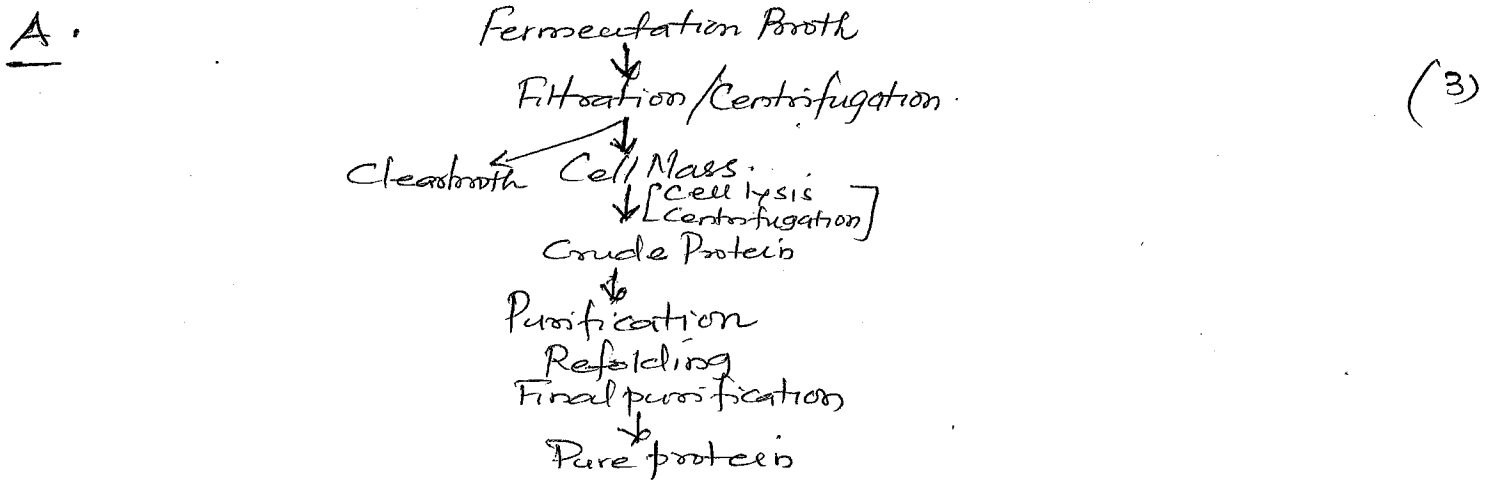 A.
Fermentation Broth
Filtration/Centrifugation.
(3)
Clearbroth Cell Mass.
[Cell lysis
Centrifugation]
Crude Protein
Purification
Refolding
Final purification
Pure protein